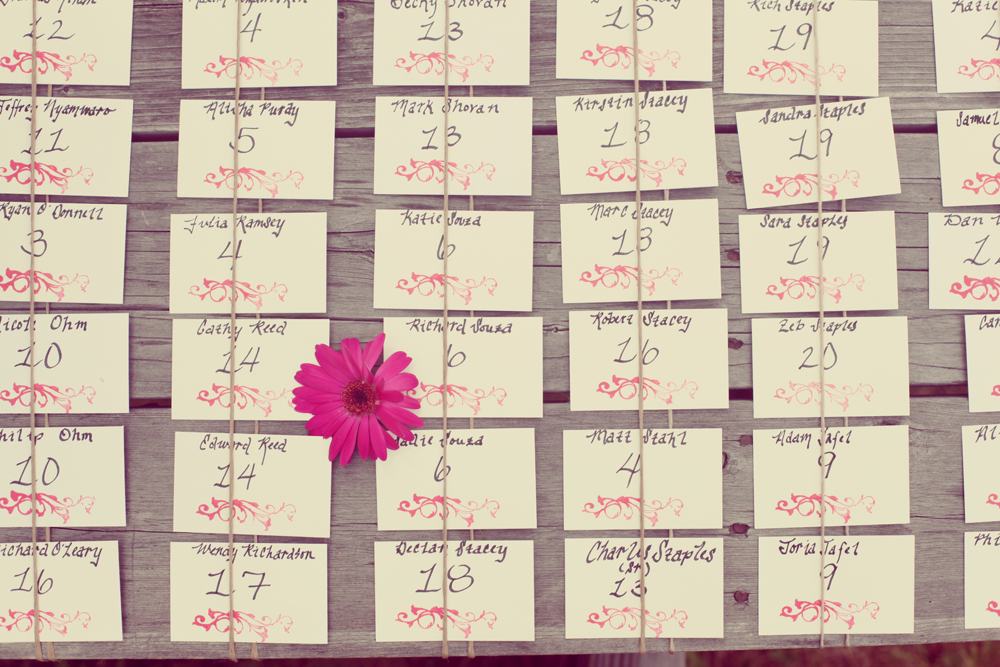 12
4
Becky Shovan
13
Stacey
18
Rich Staples
19
Katie
4
Jeffrey Nyamwaro
11
Alisha Purdy
5
Mark Shovan
13
Kirstin Stacey
18
Sandra Staples
19
Samuel
Ryan O'Donnell
3
Julia Ramsey
4
Katie Souza
6
Marc Stacey
13
Sara Staples
19
Dan
Nicole Ohm
10
Cathy Reed
14
Richard Souza
6
Robert Stacey
16
Zeb Staples
20
Philip Ohm
10
Edward Reed
14
Souza
6
Matt Stahl
4
Adam Tafel
9
Richard O'Leary
16
Wendy Richardson
17
Declan Stacey
18
Charles Staples
(Sr)
13
Toria Tafel
9